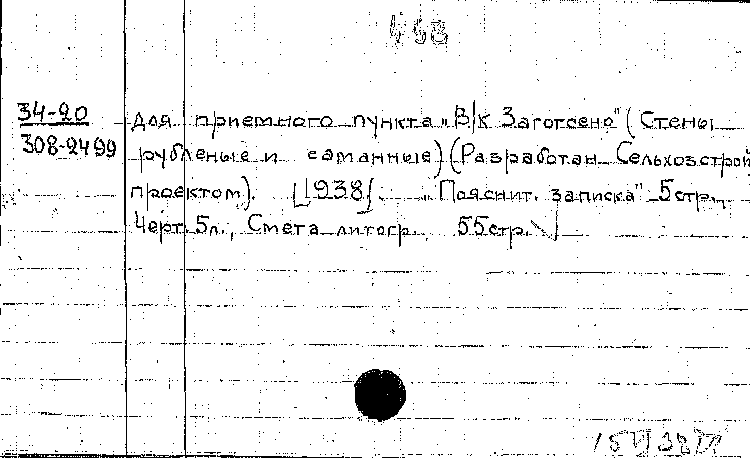 458
34-20
308-2499
Для приемного пункта „В/К Заготсено" (Стены
рубленые и саманные) (Разработан Сельхозстрой
проектом). [1938]. „Пояснит. записка" 5стр.,
Черт. 5л., Смета литогр. 55стр.